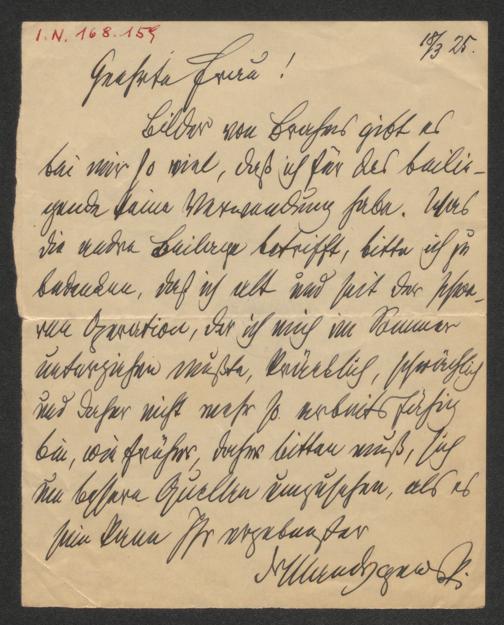 I.N. 168.159
18/3 25.
Geehrte Frau!
Bilder von Brahms gibt es
bei mir so viel, daß ich für das beilie-
gende keine Verwendung habe. Was
die andre Beilage betrifft, bitte ich zu
bedenken, daß ich alt und seit der schwe-
ren Operation, der ich mich im Sommer
unterziehen mußte, kränklich, schwächlich
und daher nicht mehr so arbeitsfähig
bin, wie früher, daher bitten muß, sich
um bessere Quellen umzusehen, als es
sein kann Ihr ergebenster
Mandyczewski